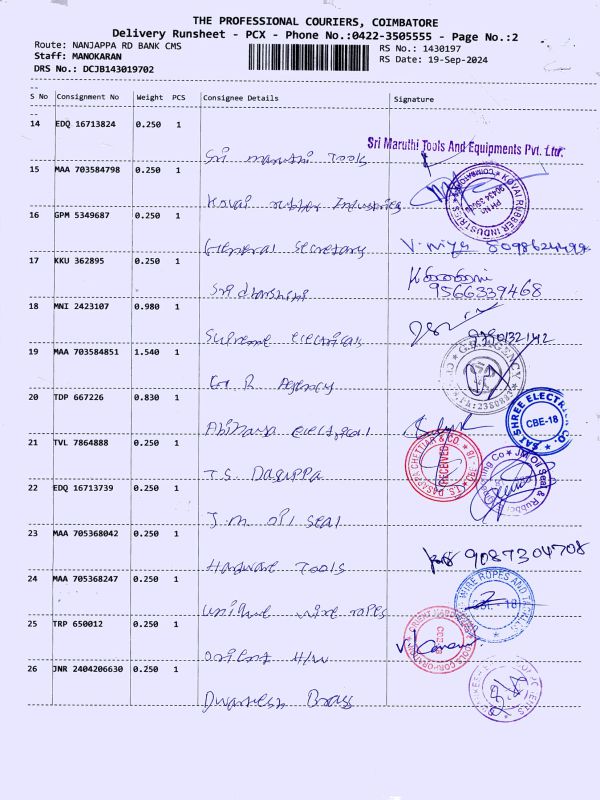 THE PROFESSIONAL COURIERS, COIMBATORE
Delivery Runsheet - PCX - Phone No.:0422-3505555 - Page No.:2
Route: NANJAPPA RD BANK CMS
RS No.: 1430197
Staff: MANOKARAN
RS Date: 19-Sep-2024
DRS No.: DCJB143019702
S No Consignment No Weight PCS Consignee Details Signature
14 EDQ 16713824 0.250 1
Sri Maruthi Tools And Equipments Pvt. Ltd.
Sri maruthi Tools
15 MAA 703584798 0.250 1
KOVAI RUBBER INDUSTRIES
Kovai rubber Industries
16 GPM 5349687 0.250 1
General Secretary
17 KKU 362895 0.250 1
9566339468
Sridharshini
18 MNI 2423107 0.980 1
Supreme electricals
19 MAA 703584851 1.540 1
G. R. AGENCY
G. R Agency
20 TDP 667226 0.830 1
SAI SHREE ELECTRIC CO.
CBE-18
Abinaya electrical
21 TVL 7864888 0.250 1
T.S. DASAPPA CHETTIAR & CO.
RECEIVED
JM Oil Seal & Rubber
T.S. Dasappa
22 EDQ 16713739 0.250 1
J.m oil seal
23 MAA 705368042 0.250 1
9087304708
Hardware Tools
24 MAA 705368247 0.250 1
WIRE ROPES AND
unique wire ropes
25 TRP 650012 0.250 1
orient H/W
26 JNR 2404206630 0.250 1
Dwarkesh Brass